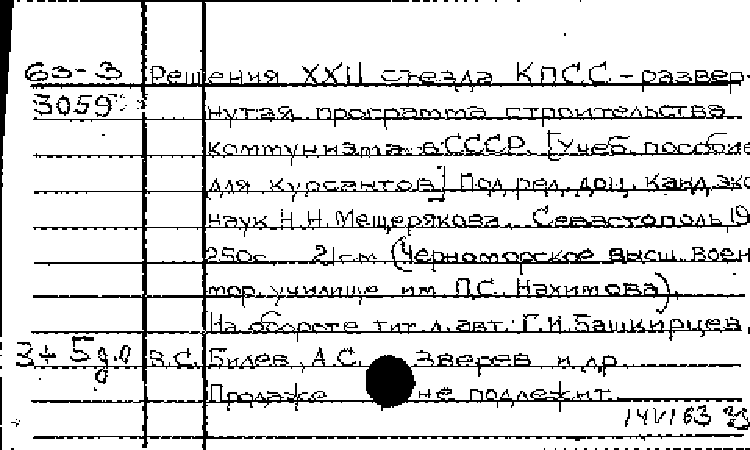 63-3 Решения XXII съезда КПСС - развер-
3059 нутая программа строительства
коммунизма в СССР. [Учеб. пособие
для курсантов] Под ред. доц. канд. эко
наук Н.Н. Мещерякова. Севастополь 19
250с. 21см (Черноморское высш. воен
мор. училище им. П.С. Нахимова).
На обороте тит. л. авт.: Г.И. Башкирцев,
3+5 В.С. Билев, А.С. Зверев и др.
Продаже не подлежит.